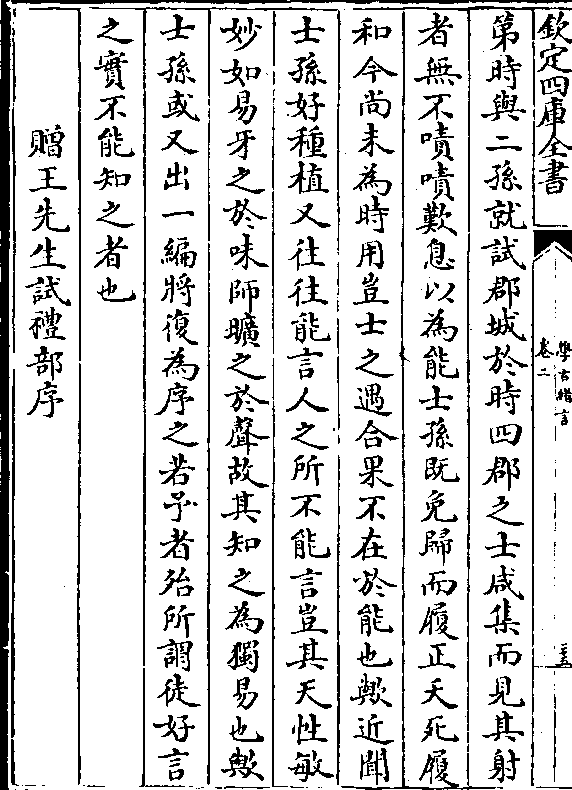 欽定四庫全書
學古緒言
卷二
第時與二孫就試郡城於時四郡之士咸集而見其射
者無不嘖嘖歎息以為能士孫既免歸而履正夭死履
和今尚未為時用豈士之遇合果不在於能也歟近聞
士孫好種植又往往能言人之所不能言豈其天性敏
妙如易牙之於味師曠之於聲故其知之為獨易也歟
士孫或又出一編將復為序之若予者殆所謂徒好言
之實不能知之者也
贈王先生試禮部序